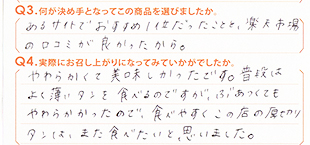 Q3.何が決め手となってこの商品を選びましたか。
あるサイトでおすすめ1位だったことと、楽天市場
の口コミが良かったから。
Q4.実際にお召し上がりになってみていかがでしたか。
やわらかくて美味しかったです。普段は
よく薄いタンを食べるのですが、ぶあつくても
やわらかかったので、食べやすくこの店の厚切り
タンは、また食べたいと思いました。